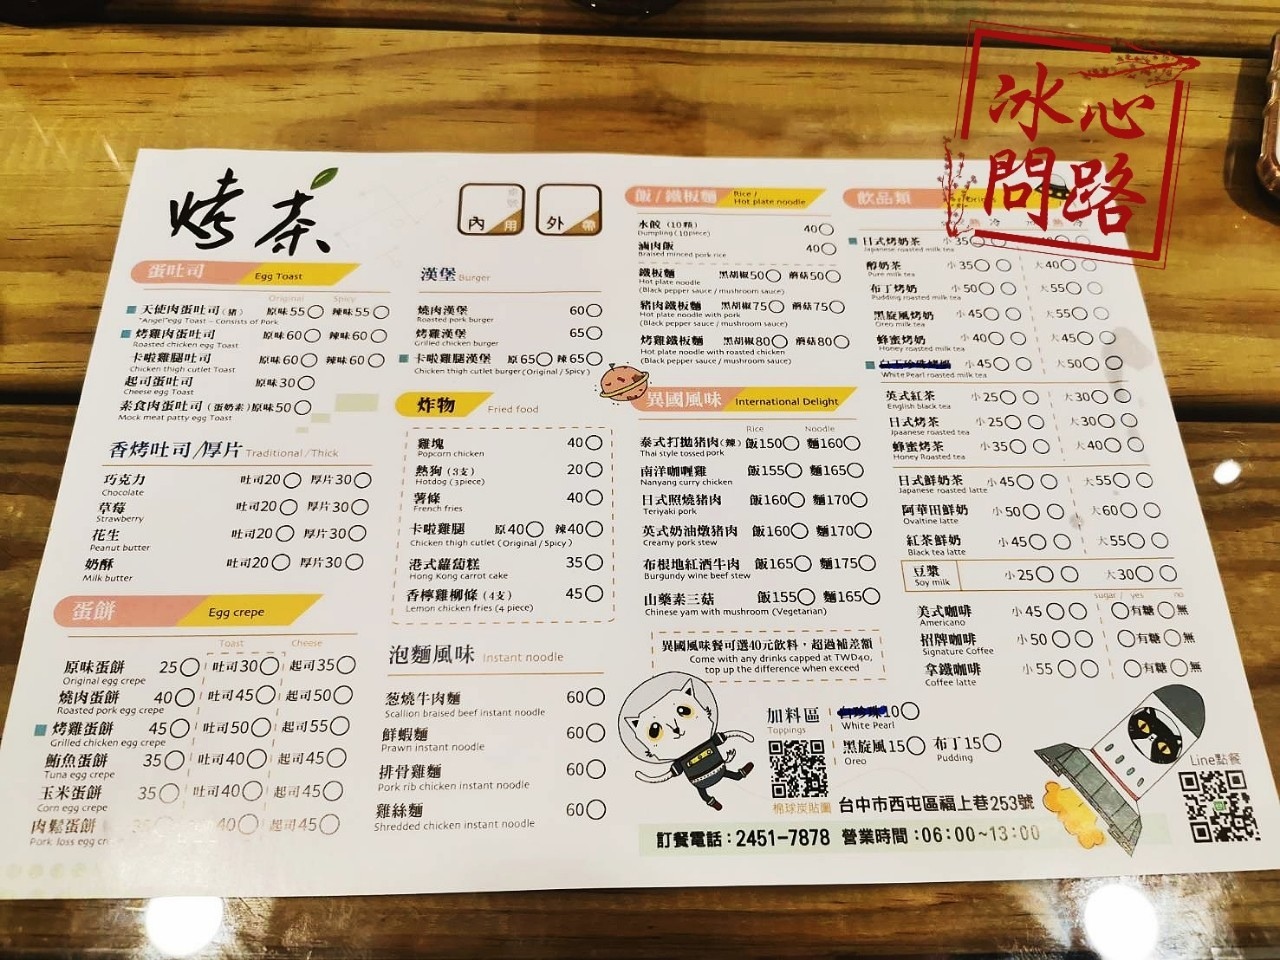 冰心
問路
烤茶
內用
外帶
蛋吐司 Egg Toast
Original Spicy
天使肉蛋吐司(豬) 原味55 辣味55
"Angel"egg Toast – Consists of Pork
烤雞肉蛋吐司 原味60 辣味60
Roasted chicken egg Toast
卡啦雞腿吐司 原味60 辣味60
Chicken thigh cutlet Toast
起司蛋吐司 原味30
Cheese egg Toast
素食肉蛋吐司(蛋奶素) 原味50
Mock meat patty egg Toast
香烤吐司/厚片 Traditional/Thick
巧克力 吐司20 厚片30
Chocolate
草莓 吐司20 厚片30
Strawberry
花生 吐司20 厚片30
Peanut butter
奶酥 吐司20 厚片30
Milk butter
蛋餅 Egg crepe
Toast Cheese
原味蛋餅 25 吐司30 起司35
Original egg crepe
燒肉蛋餅 40 吐司45 起司50
Roasted pork egg crepe
烤雞蛋餅 45 吐司50 起司55
Grilled chicken egg crepe
鮪魚蛋餅 35 吐司40 起司45
Tuna egg crepe
玉米蛋餅 35 吐司40 起司45
Corn egg crepe
肉鬆蛋餅 40 起司45
Pork loss egg
漢堡 Burger
燒肉漢堡 60
Roasted pork burger
烤雞漢堡 65
Grilled chicken burger
卡啦雞腿漢堡 原65 辣65
Chicken thigh cutlet burger(Original / Spicy)
炸物 Fried food
雞塊 40
Popcorn chicken
熱狗(3支) 20
Hotdog (3piece)
薯條 40
French fries
卡啦雞腿 原40 辣40
Chicken thigh cutlet (Original/Spicy)
港式蘿蔔糕 35
Hong Kong carrot cake
香檸雞柳條(4支) 45
Lemon chicken fries (4 piece)
泡麵風味 Instant noodle
葱燒牛肉麵 60
Scallion braised beef instant noodle
鮮蝦麵 60
Prawn instant noodle
排骨雞麵 60
Pork rib chicken instant noodle
雞絲麵 60
Shredded chicken instant noodle
飯/鐵板麵 Rice / Hot plate noodle
水餃(10顆) 40
Dumpling(10piece)
滷肉飯 40
Braised minced pork rice
鐵板麵 黑胡椒50 蘑菇50
Hot plate noodle
(Black pepper sauce / mushroom sauce)
豬肉鐵板麵 黑胡椒75 蘑菇75
Hot plate noodle with pork
(Black pepper sauce / mushroom sauce)
烤雞鐵板麵 黑胡椒80 蘑菇80
Hot plate noodle with roasted chicken
(Black pepper sauce / mushroom sauce)
異國風味 International Delight
Rice Noodle
泰式打拋豬肉(辣) 飯150 麵160
Thai style tossed pork
南洋咖喱雞 飯155 麵165
Nanyang curry chicken
日式照燒豬肉 飯160 麵170
Teriyaki pork
英式奶油燉豬肉 飯160 麵170
Creamy pork stew
布根地紅酒牛肉 飯165 麵175
Burgundy wine beef stew
山藥素三菇 飯155 麵165
Chinese yam with mushroom (Vegetarian)
異國風味餐可選40元飲料，超過補差額
Come with any drinks capped at TWD40,
top up the difference when exceed
加料區
Toppings
10
White Pearl
黑旋風15 布丁15
Oreo Pudding
飲品類
冷
日式烤奶茶 小35
Japanese roasted milk tea
醇奶茶 小35 大40
Pure milk tea
布丁烤奶 小50 大55
Pudding roasted milk tea
黑旋風烤奶 小45 大55
Oreo milk tea
蜂蜜烤奶 小40 大45
Honey roasted milk tea
小45 大50
White Pearl roasted milk tea
英式紅茶 小25 大30
English black tea
日式烤茶 小25 大30
Jpaanese roasted tea
蜂蜜烤茶 小35 大40
Honey Roasted tea
日式鮮奶茶 小45 大55
Japanese roasted latte
阿華田鮮奶 小50 大60
Ovaltine latte
紅茶鮮奶 小45 大55
Black tea latte
豆漿 小25 大30
Soy milk
sugar / yes no
美式咖啡 小45 有糖 無
Americano
招牌咖啡 小50 有糖 無
Signature Coffee
拿鐵咖啡 小55 有糖 無
Coffee latte
Line點餐
棉球炭貼圖
台中市西屯區福上巷253號
訂餐電話：2451-7878 營業時間：06:00~13:00